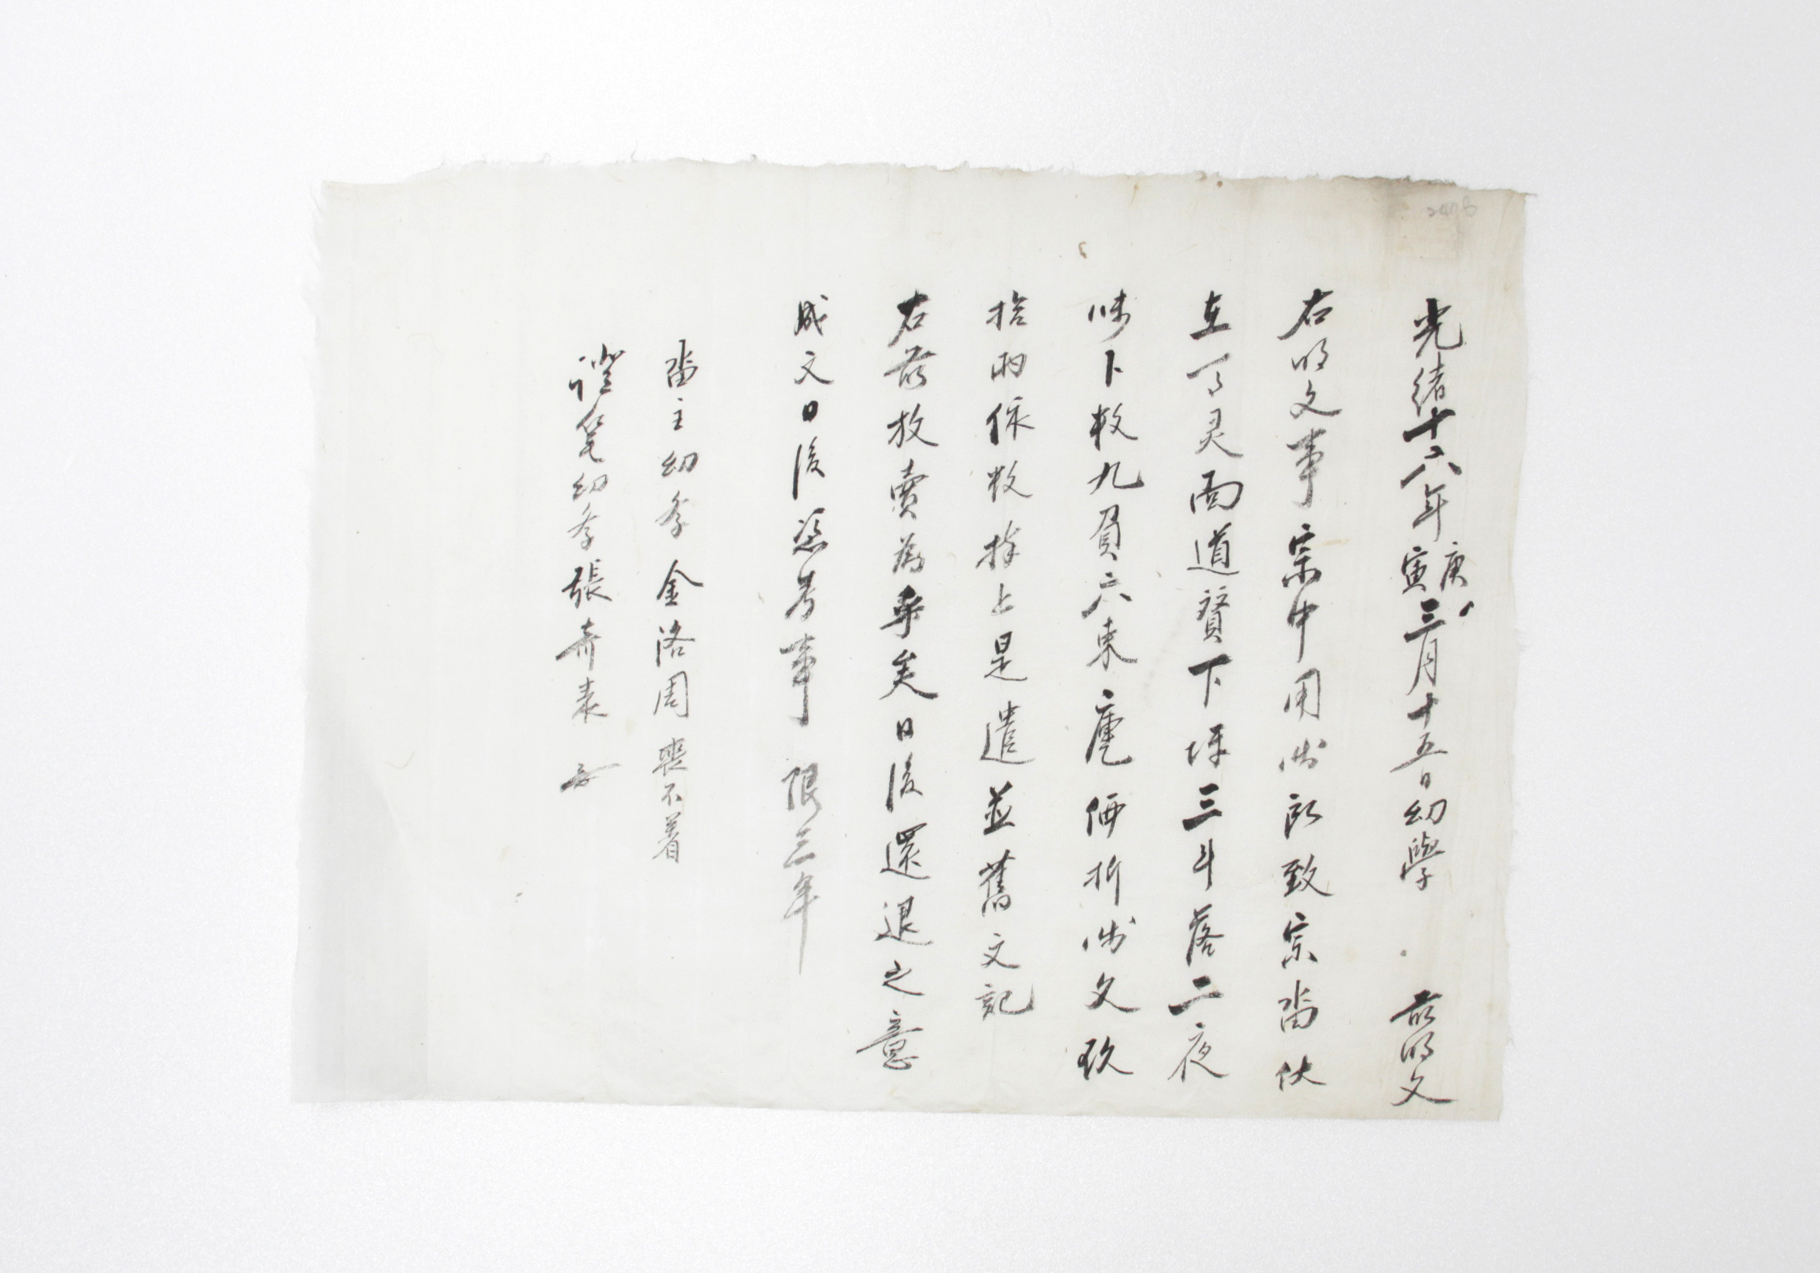 光緒十六年庚寅三月十五日幼學 前明文
右明文事宗中用出所致宗畓伏
在丁灵面道賢下坪三斗落二夜
味卜数九負六束㢱価折錢文玖
拾兩依数捧上是遣並舊文記
右前放賣為乎矣日後還退之意
成文日後憑考事 限三年
畓主幼学金洛周喪不着
證筆幼学張奇表